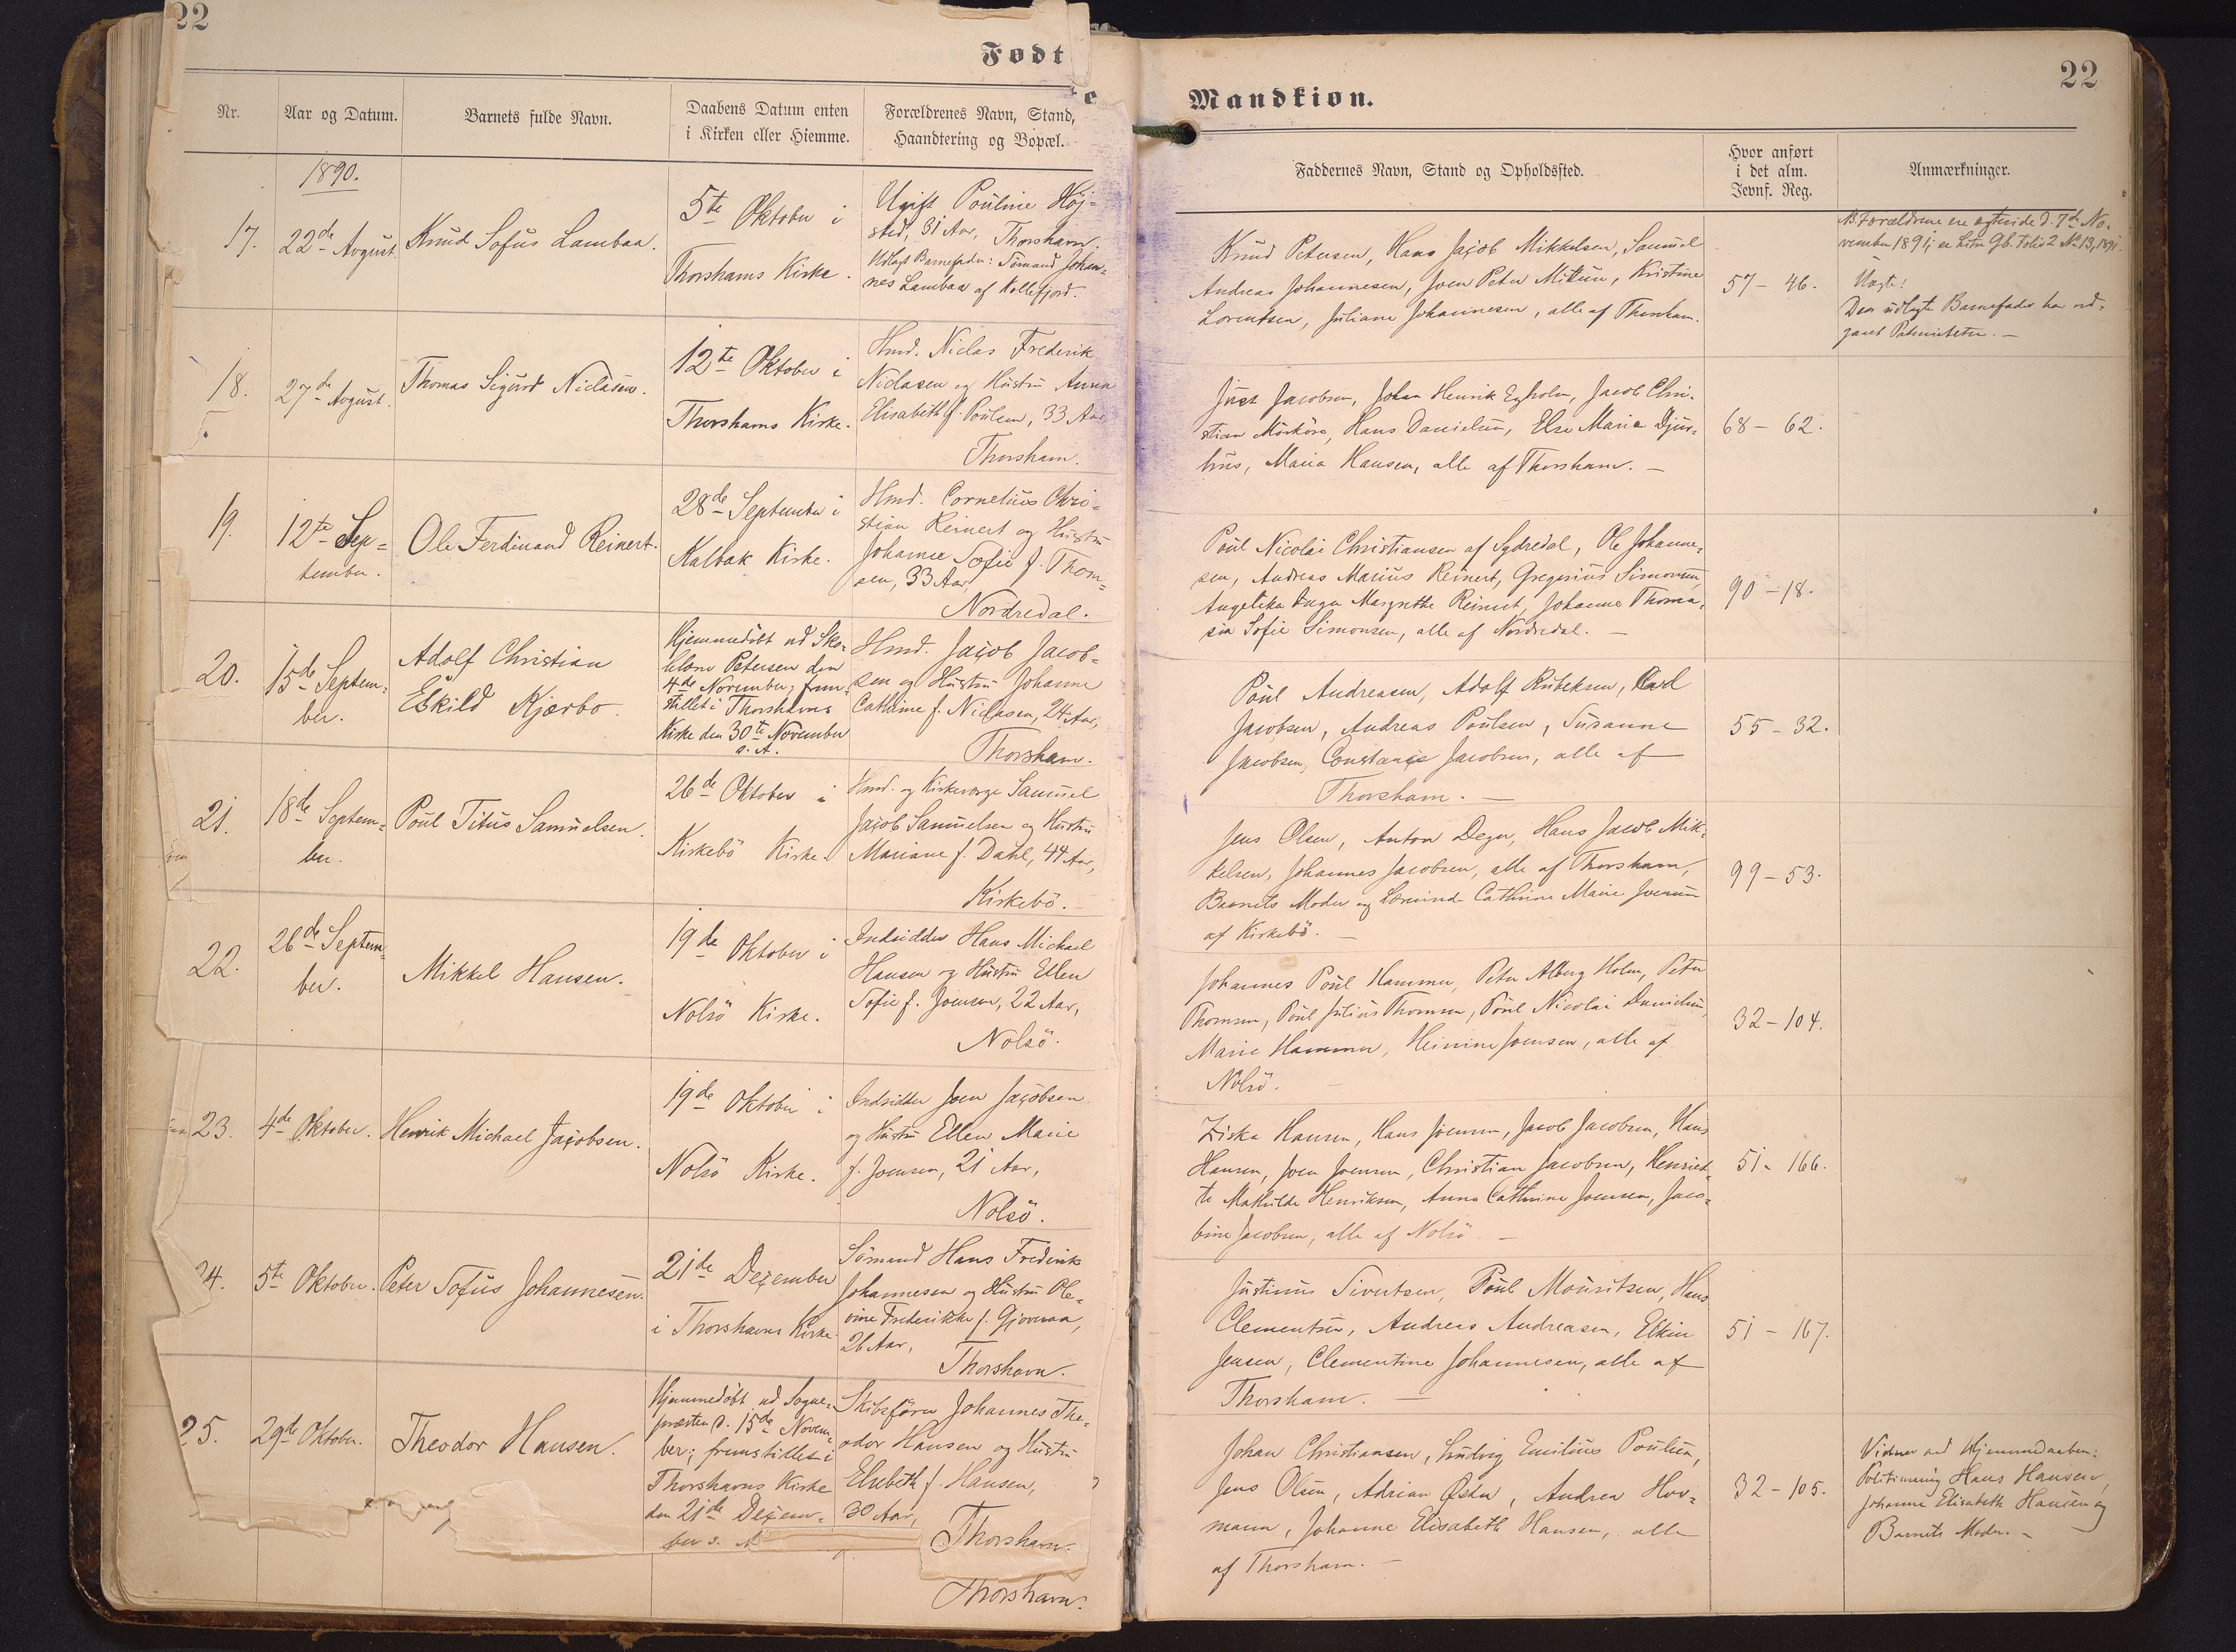 22
Født
Nr.
Aar og Datum.
Barnets fulde Navn.
Daabens Datum enten
i Kirken eller Hiemme.
Forældrenes Navn, Stand,
Haandtering og Bopæl.
1890.
17.
22de August.
Knud Sofus Lambaa.
5te Oktober i
Thorshavns Kirke.
Ugift Pouline Høj=
sted, 31 Aar, Thorshavn.
Udlagt Barnefader: Sömand Johan=
nes Lambaa af Kollefjord.
18.
27de August.
Thomas Sigurd Niclasen.
12te Oktober i
Thorshavns Kirke.
Hmd. Niclas Frederik
Niclasen og Hustru Anna
Elisabeth f. Poulsen, 33 Aar,
Thorshavn.
19.
12te Sep=
tember.
Ole Ferdinand Reinert.
28de September i
Kalbak Kirke.
Hmd. Cornelius Chri=
stian Reinert og Hustru
Johanne Sofie f. Thom=
sen, 33 Aar,
Nordredal.
20.
15de Septem=
ber.
Adolf Christian
Eskild Kjærbo.
Hjemmedöbt ad Sko=
lelærer Petersen den
4de November; frem=
stillet i Thorshavns
Kirke den 30te November
s. A.
Hmd. Jacob Jacob=
sen og Hustru Johanne
Cathrine f. Niclasen, 24 Aar,
Thorshavn.
21.
18de Septem=
ber.
Poul Titus Samuelsen.
26de Oktober i
Kirkebö Kirke.
Hmd. og Kirkeværge Samuel
Jacob Samuelsen og Hustru
Mariane f. Dahl, 44 Aar,
Kirkebö.
22.
26de Septem=
ber.
Mikkel Hansen.
19de Oktober i
Nolsö Kirke.
Indsidder Hans Michael
Hansen og Hustru Ellen
Sofie f. Joensen, 22 Aar,
Nolsö.
23.
4de Oktober.
Henrik Michael Jacobsen.
19de Oktober i
Nolsö Kirke.
Indsidder Joen Jacobsen
og Hustru Ellen Marie
f. Joensen, 21 Aar,
Nolsö.
24.
5te Oktober.
Peter Sofus Johannesen.
21de December
i Thorshavns Kirke.
Sömand Hans Frederik
Johannesen og Hustru Ole=
vine Frederikke f. Gjoveraa,
26 Aar,
Thorshavn.
25.
29de Oktober.
Theodor Hansen.
Hjemmedöbt ad Sogne=
præsten d. 15de Novem=
ber; fremstillet i
Thorshavns Kirke
den 21de Decem=
ber s. A
Skibsförer Johannes The=
odor Hansen og Hustru
Elsebeth f. Hansen,
30 Aar,
Thorshavn.
Thorshavn.
22
Mandkiøn.
Faddernes Navn, Stand og Opholdssted.
Hvor anført
i det alm.
Jevnf. Reg.
Anmærkninger.
Knud Petersen, Hans Jacob Mikkelsen, Samuel
Andreas Johannesen, Joen Peter Mitens, Kristine
Lorentsen, Juliane Johannesen, alle af Thorshavn.
57 - 46.
NB. Forældrene ere egteviede d. 7de No=
vember 1891; se Litra Gb. Folio 2 No 13, 1891.
Uægte!
Den udlagte Barnefader har ved=
gaaet Paterniteten. -
Just Jacobsen, Johan Henrik Egholm, Jacob Chri=
stian Mörköre, Hans Danielsen, Else Marie Djur=
huus, Maria Hansen, alle af Thorshavn. -
68 - 62.
Poul Nicolai Christiansen af Sydredal, Ole Johanne=
sen, Andreas Marius Reinert, Gregorius Simonsen,
Angelika Inger Margrethe Reinert, Johanne Thoma=
sia Sofie Simonsen, alle af Nordredal. -
90 - 18.
Poul Andreasen, Adolf Rubeksen, Karl
Jacobsen, Andreas Poulsen, Susanne
Jacobsen, Constance Jacobsen, alle af
Thorshavn. -
55 - 32.
Jens Olsen, Anton Degn, Hans Jacob Mik=
kelsen, Johannes Jacobsen, alle af Thorshavn,
Barnets Moder og Cathrine Marie Joensen
af Kirkebö. -
99 - 53.
Johannes Poul Hammer, Peter Alberg Holm, Peter
Thomsen, Poul Julius Thomsen, Poul Nicolai Danielsen,
Marie Hammer, Heinine Joensen, alle af
Nolsö. -
32 - 104.
Ziska Hansen, Hans Joensen, Jacob Jacobsen, Hans
Hansen, Joen Joensen, Christian Jacobsen, Henriet=
te Mathilde Henriksen, Anna Cathrine Joensen, Jaco=
bine Jacobsen, alle af Nolsö. -
51 - 166.
Justinus Sivertsen, Poul Mouritsen, Hans
Clementsen, Andreas Andreasen, Elkin
Jensen, Clementine Johannesen, alle af
Thorshavn. -
51 - 167.
Johan Christiansen, Ludvig Emilius Poulsen,
Jens Olsen, Adrian Øster, Andrea Hov=
mann, Johanne Elisabeth Hansen, alle
af Thorshavn. -
32 - 105.
Vidner ved Hjemmedaaben:
Hans Hansen,
Johanne Elisabeth Hansen og
Barnets Moder. -